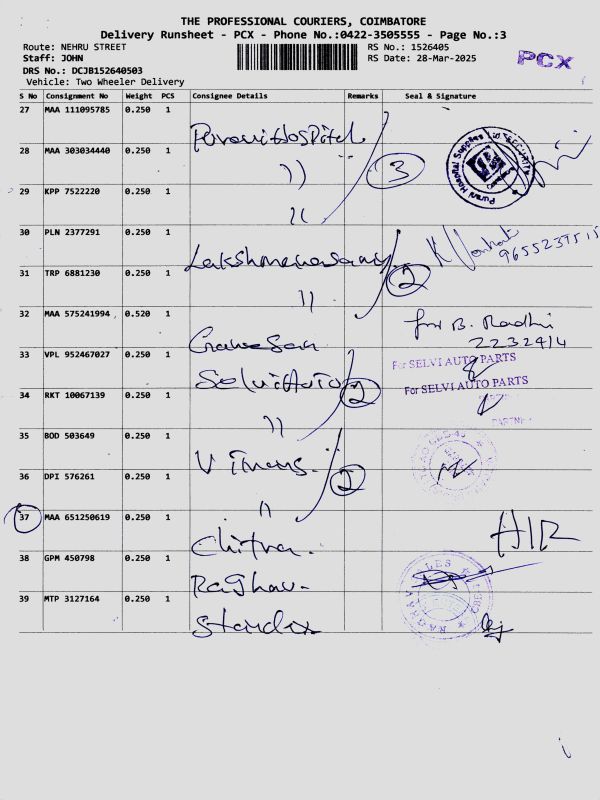 THE PROFESSIONAL COURIERS, COIMBATORE
Delivery Runsheet - PCX - Phone No.:0422-3505555 - Page No.:3
Route: NEHRU STREET RS No.: 1526405
Staff: JOHN RS Date: 28-Mar-2025
PCX
DRS No.: DCJB152640503
Vehicle: Two Wheeler Delivery
S No Consignment No Weight PCS Consignee Details Remarks Seal & Signature
27 MAA 111095785 0.250 1 Purani Hospital
28 MAA 303034440 0.250 1 )) 3
Purani Hospital Supplies
SECURITY
29 KPP 7522220 0.250 1 ((
30 PLN 2377291 0.250 1 Lakshmanasamy
9655237515
31 TRP 6881230 0.250 1 )) 2
32 MAA 575241994 0.520 1 Ganesan for B. Radhi
2232414
33 VPL 952467027 0.250 1 Selvi Auto 2 For SELVI AUTO PARTS
For SELVI AUTO PARTS
34 RKT 10067139 0.250 1 ))
PARTNER
35 BOD 503649 0.250 1 V Times. 2
36 DPI 576261 0.250 1 ))
37 MAA 651250619 0.250 1 Chitra.
38 GPM 450798 0.250 1 Raghav.
39 MTP 3127164 0.250 1